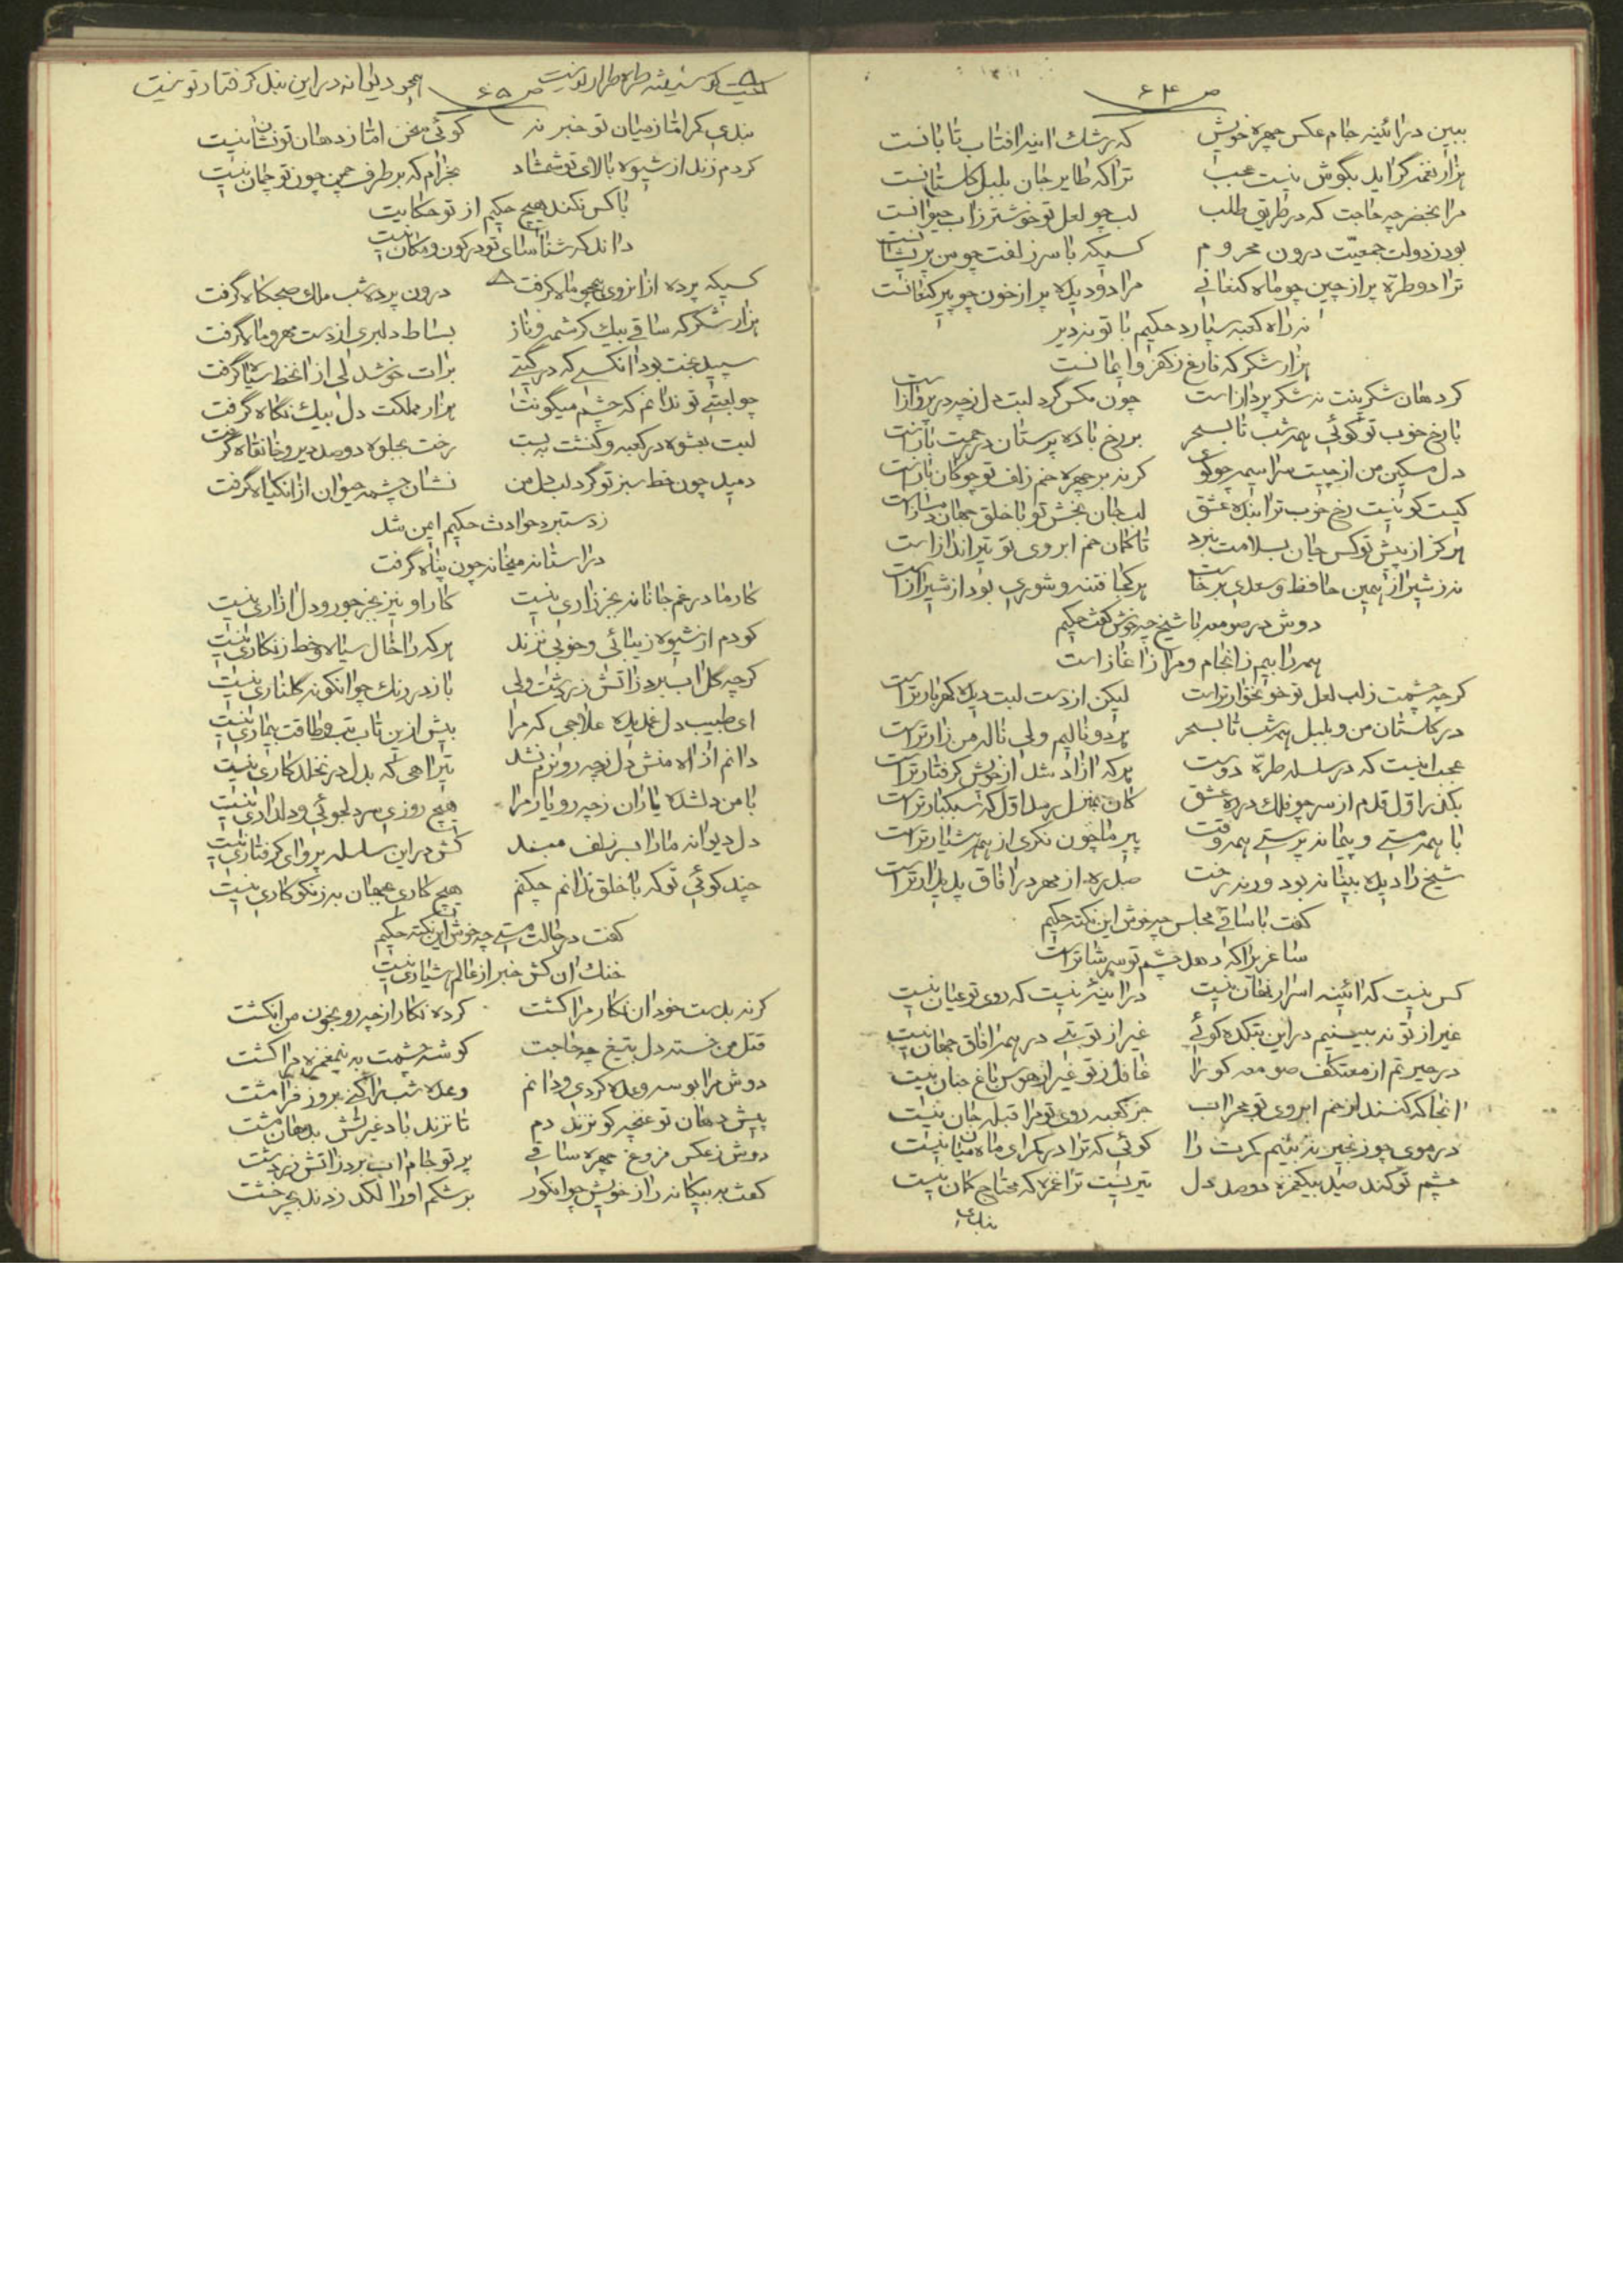 ص ۶۴
ببین در آئینه جام عکس چهره خویش که رشک اینه افتاب تابانست
هزار نغمه گر اید بگوش نیست عجب ترا که طایر جان بلبل گلستانست
مرا بخضر چه حاجت که در طریق طلب لب چو لعل تو خوشتر ز اب حیوانست
بود ز دولت جمعیّت درون محروم کسیکه با سر زلفت چو من پریشانست
ترا دو طرّه پر از چین چو ماه کنعانی مرا دو دیده پر از خون چو پیر کنعانست
نه راه کعبه سپارد حکیم با تو نه دیر
هزار شکر که فارغ ز کفر و ایمانست
گر دهان شکرینت نه شکر پرداز است چون مگس گرد لبت دل ز چه در پرواز است
با رخ خوب تو گوئی همه شب تا بسحر بر رخ باده پرستان در جمت باز است
دل مسکین من از چیست سراسیمه چو گوی گرنه بر چهره خم زلف تو چوگان باز است
کیست کو نیست رخ خوب ترا بنده عشق لب جان بخش تو با خلق جهان دمساز است
هرگز از پیش تو کس جان بسلامت نبرد تا کمان خم ابروی تو تیرانداز است
نه ز شیراز همین حافظ و سعدی برخاست هر کجا فتنه و شوری بود از شیراز است
دوش در صومعه با شیخ چه خوش گفت حکیم
همه را بیم ز انجام و مرا ز اغاز است
گرچه چشمت ز لب لعل تو خونخوار تر است لیکن از دست لبت دیده گهربار تر است
در گلستان من و بلبل همه شب تا بسحر هر دو نالیم ولی ناله من زار تر است
عجب اینست که در سلسله طرّه دوست هر که ازاد شد از خویش گرفتار تر است
بگذر اوّل قدم از سر چو فلک در ره عشق کان بمنزل رسد اوّل که سبکبار تر است
با همه مستی و پیمانه پرستی همه وقت پیر ما چون نگری از همه هشیار تر است
شیخ را دیده بینا نه بود ورنه رخت صد ره از مهر در افاق پدیدار تر است
گفت با ساقی مجلس چه خوش این نکته حکیم
ساغر برا که دهد چشم تو سرشار تر است
کس نیست که ائینه اسرار نهان نیست در اینه نیست که روی تو عیان نیست
غیر از تو نه بینیم در این بتکده گوئی غیر از تو بتی در همه افاق جهان نیست
در حیرتم از معتکف صومعه کو را غافل ز تو غیر از هوس باغ جنان نیست
انجا که کنند از خم ابروی تو محراب جز کعبه روی تو مرا قبله جان نیست
در موی چو زنجیر نه بینیم کمرت را گوئی که ترا در کمر ای ماه میان نیست
چشم تو کند صید بیکغمزه دو صد دل تیریست ترا غمزه که محتاج کمان نیست
بندی
ص ۶۵
کیست کو شیفته طره طرار تو نیست همچو دیوانه در این بند گرفتار تو نیست
بندی کمر اما ز میان تو خبر نه گوئی سخن امّا ز دهان تو نشان نیست
کردم زند از شیوه بالای تو شمشاد بخرام که بر طرف چمن چون تو چمان نیست
با کس نکند هیچ حکیم از تو حکایت
داند که شناسای تو در کون و مکان نیست
کسیکه پرده از انروی همچو ماه گرفت درون پرده شب ملک صبحگاه گرفت
هزار شکر که ساقی بیک کرشمه و ناز بساط دلبری از دست مهر و ماه گرفت
سپید بخت بود انکسی که در گیتی برات خوشدلی از انخط سیاه گرفت
چو لعبتی تو ندانم که چشم میگونت هزار مملکت دل بیک نگاه گرفت
لبت بعشوه در کعبه و کنشت ببست رخت بجلوه دو صد دیر و خانقاه گرفت
دمید چون خط سبز تو گرد لب دل من نشان چشمه حیوان از انگیاه گرفت
ز دستبرد حوادث حکیم ایمن شد
در استانه میخانه چون پناه گرفت
کار ما در غم جانانه بجز زاری نیست کار او نیز بجز جور و دل ازاری نیست
کو دم از شیوه زیبائی و خوبی نزند هر که را خال سیاه و خط زنگاری نیست
گرچه گل اب برد ز اتش زردشت ولی باز در رنگ چو انگونه گلناری نیست
ای طبیب دل غمدیده علاجی که مرا بیش ازین تاب تب و طاقت بیماری نیست
دانم از اه منش دل ز چه رو نرم نشد تیر اهی که بدل در نخلد کاری نیست
با من دلشده یاران ز چه رو یار مرا هیچ روزی سر دلجوئی و دلداری نیست
دل دیوانه ما را بسر زلف مبند کش در این سلسله پروای گرفتاری نیست
چند گوئی تو که با خلق ندانم چکنم هیچ کاری بجهان به ز نکو کاری نیست
گفت در حالت مستی چه خوش این نکته حکیم
خنک ان کش خبر از عالم هشیاری نیست
گرنه بدست خود ان نگار مرا کشت کرده نگار از چه رو بخون من انگشت
قتل من خسته دل بتیغ چه حاجت گوشه چشمت به نیمغمزه مرا کشت
دوش مرا بوسه وعده کردی و دانم وعده شب را کنی بروز فرامشت
پیش دهان تو غنچه کو نزند دم تا نزند باد غیرتش بدهان مشت
دوش ز عکس فروغ چهره ساقی پرتو جام اب برد ز اتش زردشت
گفت به بیگانه راز خویش چو انگور بر شکم او را لگد زدند بچرخشت